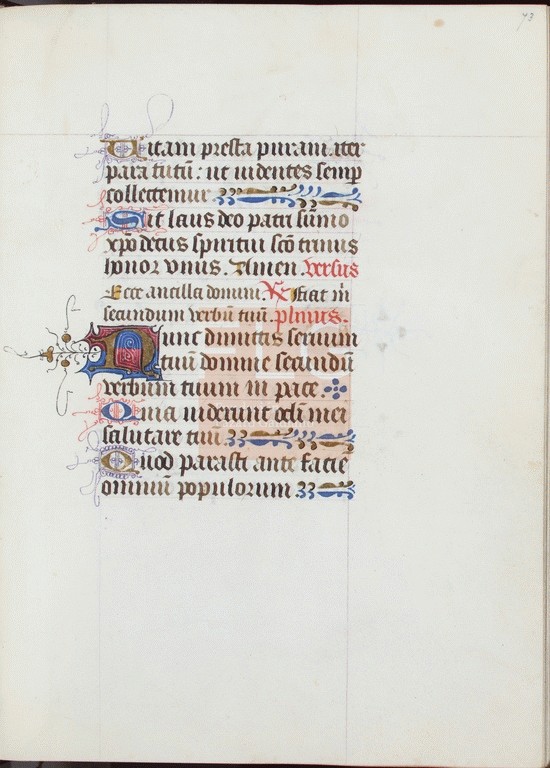 73
Vitam presta puram. iter
para tutū: ut videntes semp
collectemur
Sit laus deo patri sūmo
xp̄o decus spiritui sc̄o trinus
honor vnus. Amen. versus
Ecce ancilla domini. R̸ Fiat m̄
secundum verbū tuū. p̄lmus.
Nunc dimittis servum
tuū domine secundū
verbum tuum in pace.
Quia viderunt oc̄li mei
salutare tuū
Quod parasti ante facie
omniū populorum